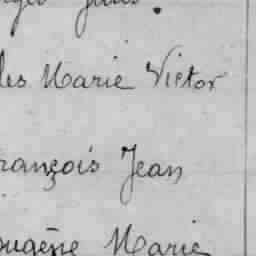 les Marie Victor
rançois Jean
ougène Marie